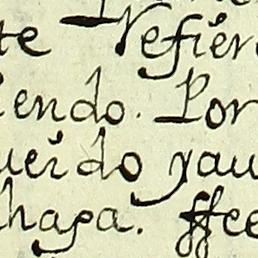 te Refiere
iendo. Por
uerdo yau
haga. ffee